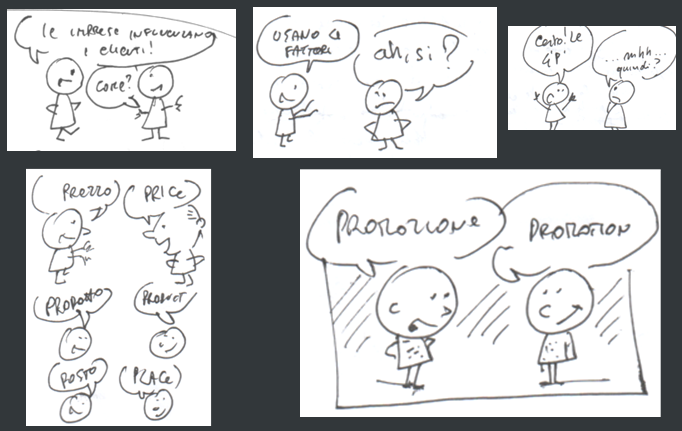 le imprese influenzano
i clienti!
come?
USANO 4
FATTORI
ah, sì?
Certo! le
4 P!
...mhh...
quindi?
PREZZO
PRICE
PRODOTTO
PRODUCT
POSTO
PLACE
PROMOZIONE
PROMOTION